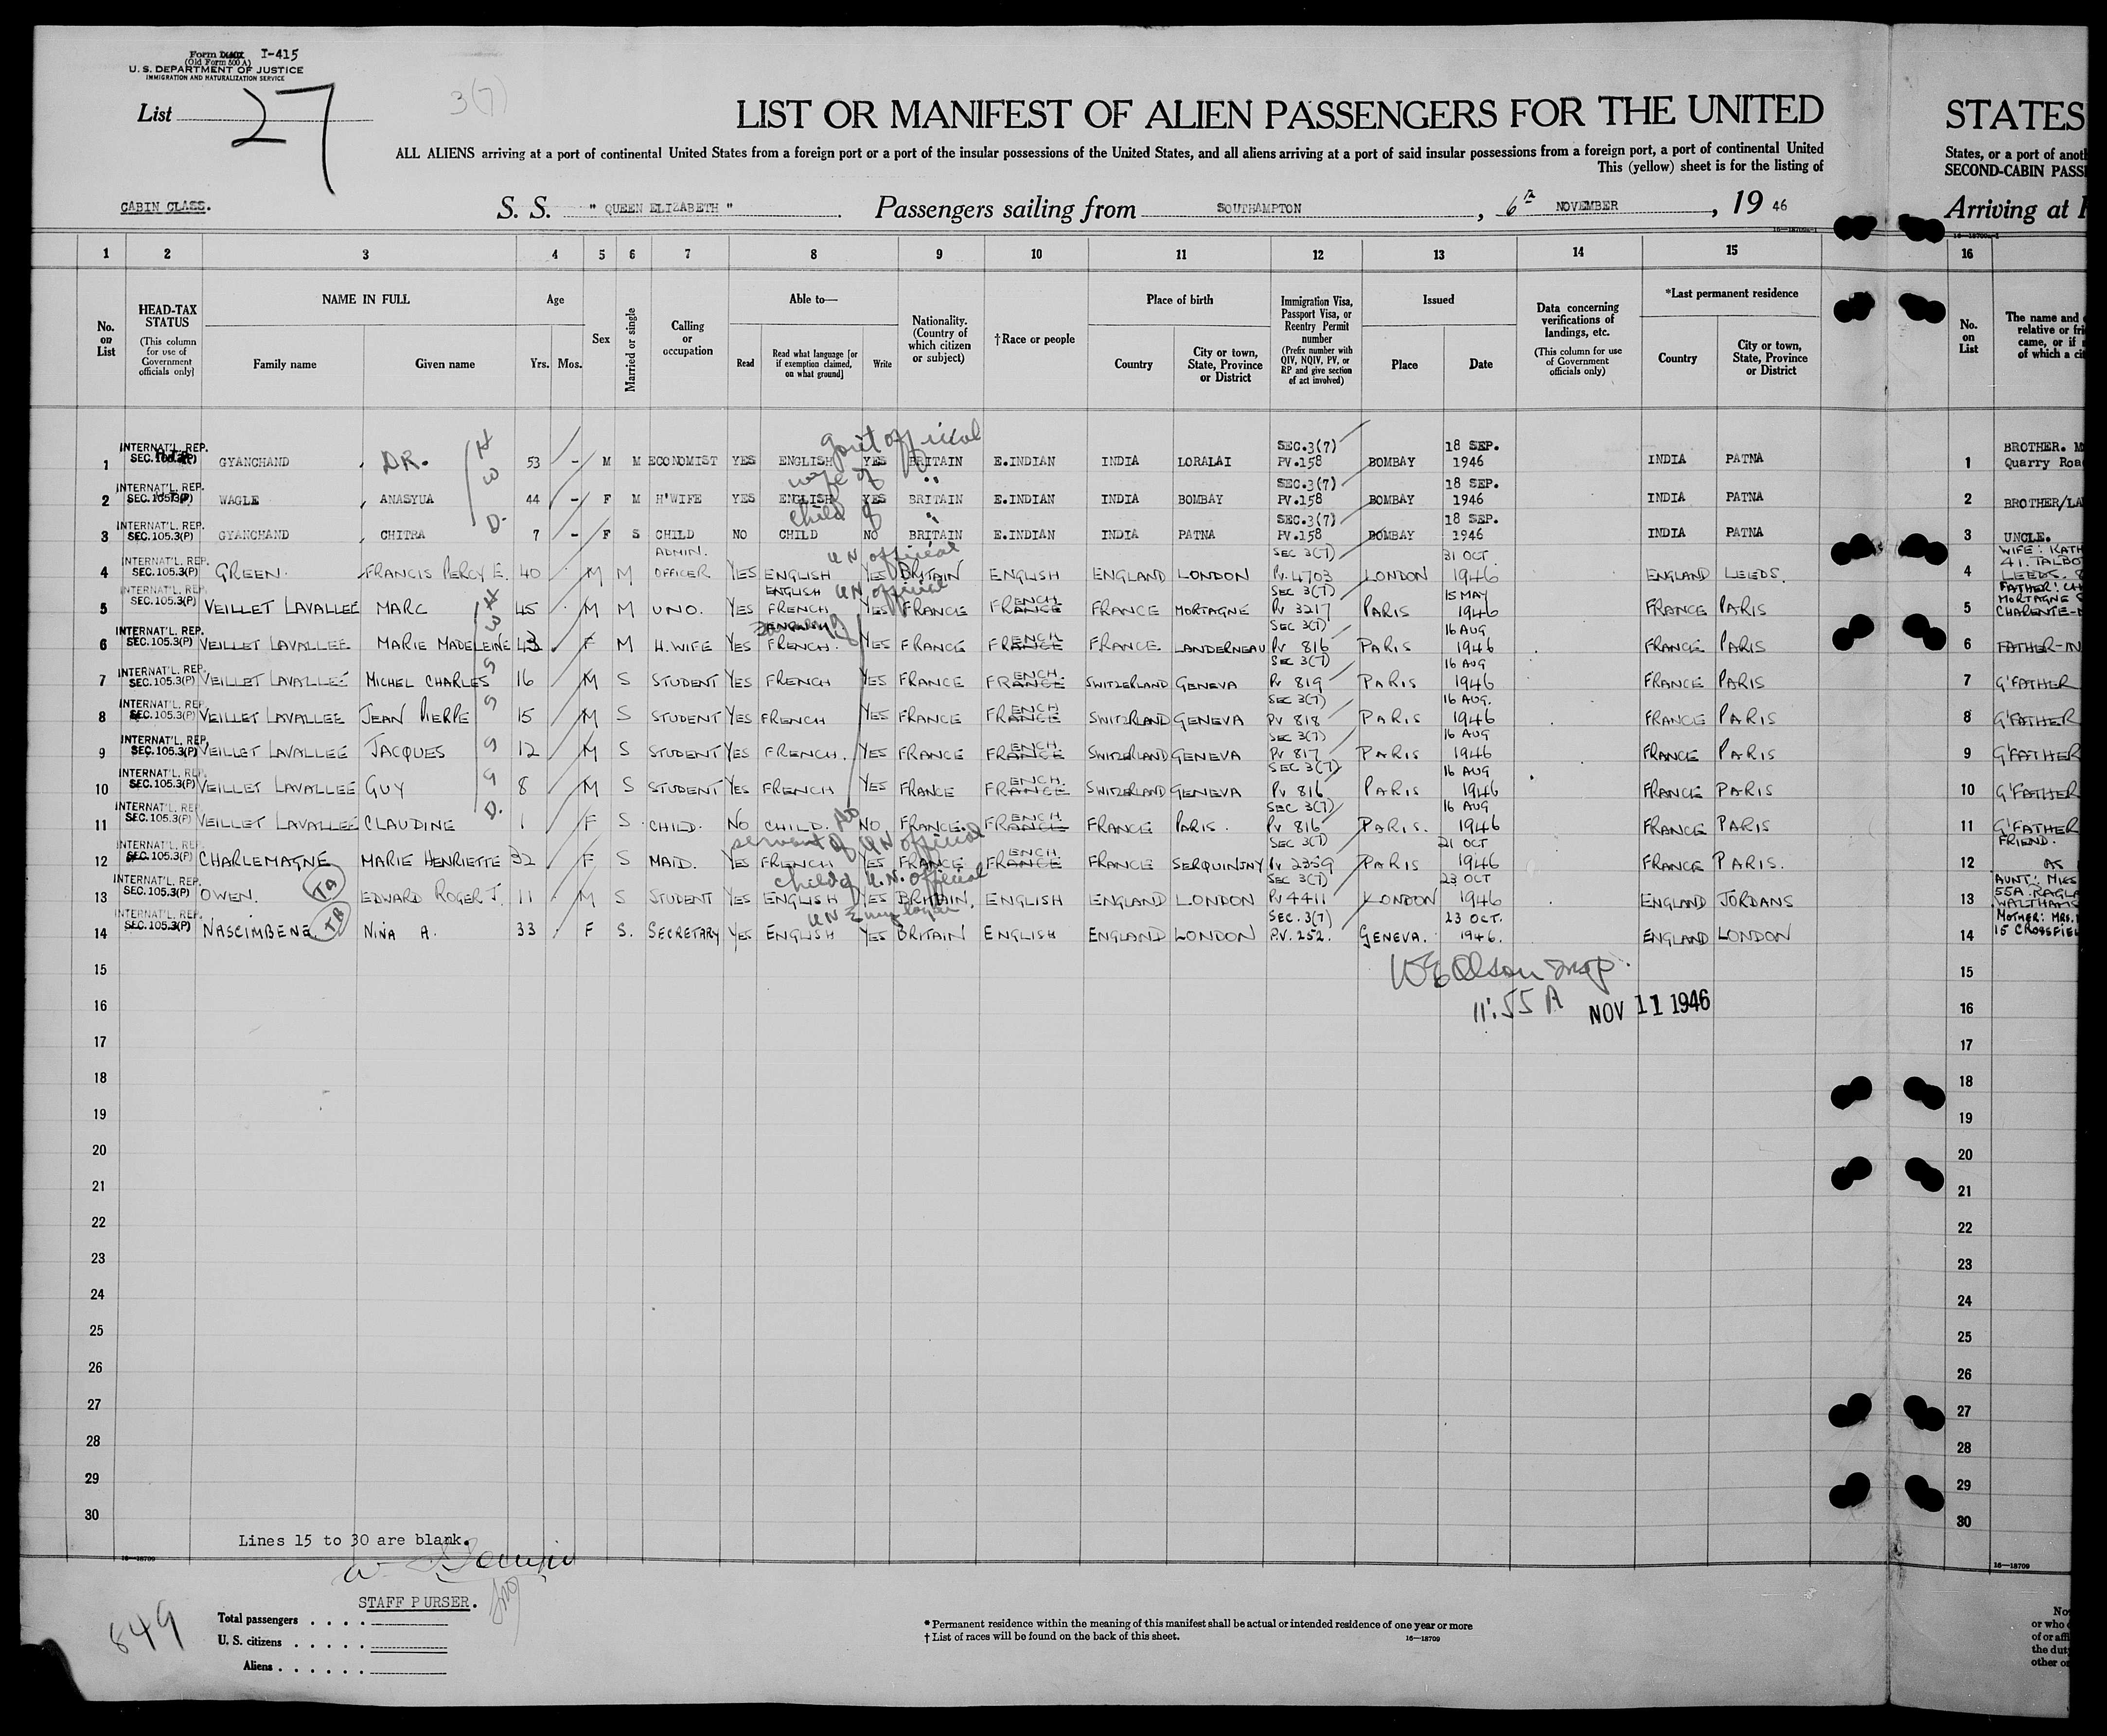 Form I-415
(Old Form 500 A)
U. S. DEPARTMENT OF JUSTICE
IMMIGRATION AND NATURALIZATION SERVICE
List 27
3(7)
LIST OR MANIFEST OF ALIEN PASSENGERS FOR THE UNITED
STATES
ALL ALIENS arriving at a port of continental United States from a foreign port or a port of the insular possessions of the United States, and all aliens arriving at a port of said insular possessions from a foreign port, a port of continental United
This (yellow) sheet is for the listing of
States, or a port of anoth
SECOND-CABIN PASS
CABIN CLASS.
S. S. " QUEEN ELIZABETH " Passengers sailing from SOUTHAMPTON, 6th NOVEMBER, 19 46
Arriving at
1 2 3 4 5 6 7 8 9 10 11 12 13 14 15 16
No. on List
HEAD-TAX STATUS (This column for use of Government officials only)
NAME IN FULL Family name Given name
Age Yrs. Mos.
Sex
Married or single
Calling or occupation
Able to— Read Read what language [or if exemption claimed, on what ground] Write
Nationality. (Country of which citizen or subject)
†Race or people
Place of birth Country City or town, State, Province or District
Immigration Visa, Passport Visa, or Reentry Permit number (Prefix number with QIV, NQIV, PV, or RP and give section of act involved)
Issued Place Date
Data concerning verifications of landings, etc. (This column for use of Government officials only)
*Last permanent residence Country City or town, State, Province or District
No. on List
The name and
relative or fri
came, or if
of which a ci
1 INTERNAT'L. REP. SEC. 105.3(P) GYANCHAND, DR. H 53 - M M ECONOMIST YES ENGLISH YES BRITAIN E.INDIAN INDIA LORALAI SEC.3(7) PV.158 BOMBAY 18 SEP. 1946 INDIA PATNA 1 BROTHER. Quarry Roa
Gov't official
2 INTERNAT'L. REP. SEC. 105.3(P) WAGLE, ANASYUA W 44 - F M H'WIFE YES ENGLISH YES BRITAIN E.INDIAN INDIA BOMBAY SEC.3(7) PV.158 BOMBAY 18 SEP. 1946 INDIA PATNA 2 BROTHER/LA
wife of "
3 INTERNAT'L. REP. SEC. 105.3(P) GYANCHAND, CHITRA D. 7 - F S CHILD NO CHILD NO BRITAIN E.INDIAN INDIA PATNA SEC.3(7) PV.158 BOMBAY 18 SEP. 1946 INDIA PATNA 3 UNCLE.
child of "
4 INTERNAT'L. REP. SEC. 105.3(P) GREEN. FRANCIS PERCY E. 40 M M ADMIN. OFFICER YES ENGLISH YES BRITAIN ENGLISH ENGLAND LONDON SEC 3(7) PV. 4703 LONDON 31 OCT 1946 ENGLAND LEEDS. 4 WIFE: KATH 41. TALBO LEEDS.
UN official
5 INTERNAT'L. REP. SEC. 105.3(P) VEILLET LAVALLEE MARC H 45 M M UNO. YES ENGLISH FRENCH YES FRANCE FRENCH FRANCE MORTAGNE SEC 3(7) PV 3217 PARIS 15 MAY 1946 FRANCE PARIS 5 FATHER: CH MORTAGNE CHARENTE-
UN official
6 INTERNAT'L. REP. SEC. 105.3(P) VEILLET LAVALLEE MARIE MADELEINE W 43 F M H. WIFE YES FRENCH. YES FRANCE FRENCH FRANCE. LANDERNEAU SEC 3(7) PV 816 PARIS 16 AUG 1946 FRANCE PARIS 6 FATHER-IN
7 INTERNAT'L. REP. SEC. 105.3(P) VEILLET LAVALLEE MICHEL CHARLES S 16 M S STUDENT YES FRENCH YES FRANCE FRENCH SWITZERLAND GENEVA SEC 3(7) PV 819 PARIS 16 AUG 1946 FRANCE PARIS 7 G'FATHER
8 INTERNAT'L. REP. SEC. 105.3(P) VEILLET LAVALLEE JEAN PIERRE S 15 M S STUDENT YES FRENCH YES FRANCE FRENCH SWITZERLAND GENEVA SEC 3(7) PV 818 PARIS 16 AUG. 1946 FRANCE PARIS 8 G'FATHER
9 INTERNAT'L. REP. SEC. 105.3(P) VEILLET LAVALLEE JACQUES S 12 M S STUDENT YES FRENCH. YES FRANCE FRENCH SWITZERLAND GENEVA SEC 3(7) PV 817 PARIS 16 AUG 1946 FRANCE PARIS 9 G'FATHER
10 INTERNAT'L. REP. SEC. 105.3(P) VEILLET LAVALLEE GUY S 8 M S STUDENT YES FRENCH YES FRANCE FRENCH SWITZERLAND GENEVA SEC 3(7) PV 816 PARIS 16 AUG 1946 FRANCE PARIS 10 G'FATHER
11 INTERNAT'L. REP. SEC. 105.3(P) VEILLET LAVALLEE CLAUDINE D. 1 F S CHILD. NO CHILD. NO FRANCE. FRENCH FRANCE PARIS. SEC 3(7) PV 816 PARIS. 16 AUG 1946 FRANCE PARIS 11 G'FATHER
12 INTERNAT'L. REP. SEC. 105.3(P) CHARLEMAGNE MARIE HENRIETTE 32 F S MAID. YES FRENCH YES FRANCE FRENCH FRANCE SERQUINJNY SEC 3(7) PV 2359 PARIS 21 OCT 1946 FRANCE PARIS. 12 FRIEND. AS
servant of UN official
13 INTERNAT'L. REP. SEC. 105.3(P) OWEN. EDWARD ROGER J. 11 M S STUDENT YES ENGLISH YES BRITAIN, ENGLISH ENGLAND LONDON SEC 3(7) PV 4411 LONDON 23 OCT 1946 ENGLAND JORDANS 13 AUNT: MISS 55A RAGLA WALTHAMS
child of U.N. official
14 INTERNAT'L. REP. SEC. 105.3(P) NASCIMBENE NINA A. 33 F S. SECRETARY YES ENGLISH YES BRITAIN ENGLISH ENGLAND LONDON SEC. 3(7) P.V. 252. GENEVA. 23 OCT. 1946. ENGLAND LONDON 14 MOTHER: MRS. 15 CROSSFIEL
UN Employee
15 15
W E Olson Insp.
16 11:55 A NOV 11 1946 16
17 17
18 18
19 19
20 20
21 21
22 22
23 23
24 24
25 25
26 26
27 27
28 28
29 29
30 30
Lines 15 to 30 are blank.
16—18709 16—18709
STAFF PURSER.
849
Total passengers
U. S. citizens
Aliens
* Permanent residence within the meaning of this manifest shall be actual or intended residence of one year or more
† List of races will be found on the back of this sheet. 16—18709
No
or who
of or affi
the dut
other o